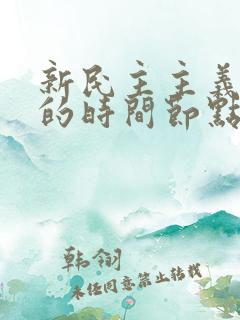 新民主主義
的時間節點
韩翎
未经同意禁止转载